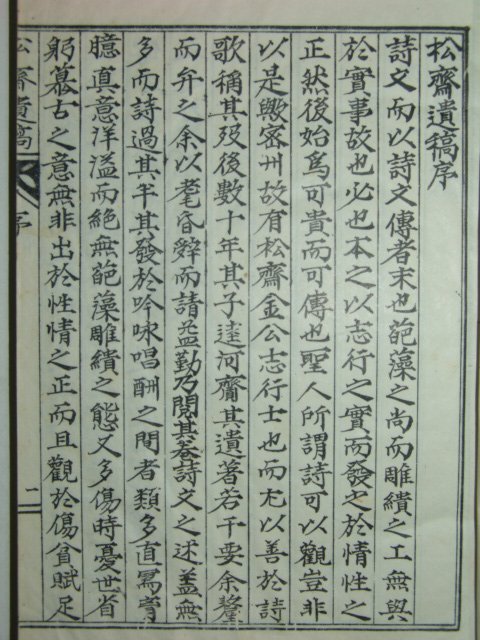 松齋遺稿序
詩文而以詩文傳者末也葩藻之尚而雕繢之工無與
於實事故也必也本之以志行之實而發之於情性之
正然後始爲可貴而可傳也聖人所謂詩可以觀豈非
以是歟密州故有松齋金公志行士也而尤以善於詩
歌稱其歿後數十年其子達河齎其遺著若干要余釐
而弁之余以耄昏辭而請益勤乃閱其卷詩文之述盖無
多而詩過其半其發於吟咏唱酬之間者類多直寫胷
臆真意洋溢而絶無葩藻雕繢之態又多傷時憂世省
躬慕古之意無非出於性情之正而且觀於傷貧賦足
松齋遺稿 序